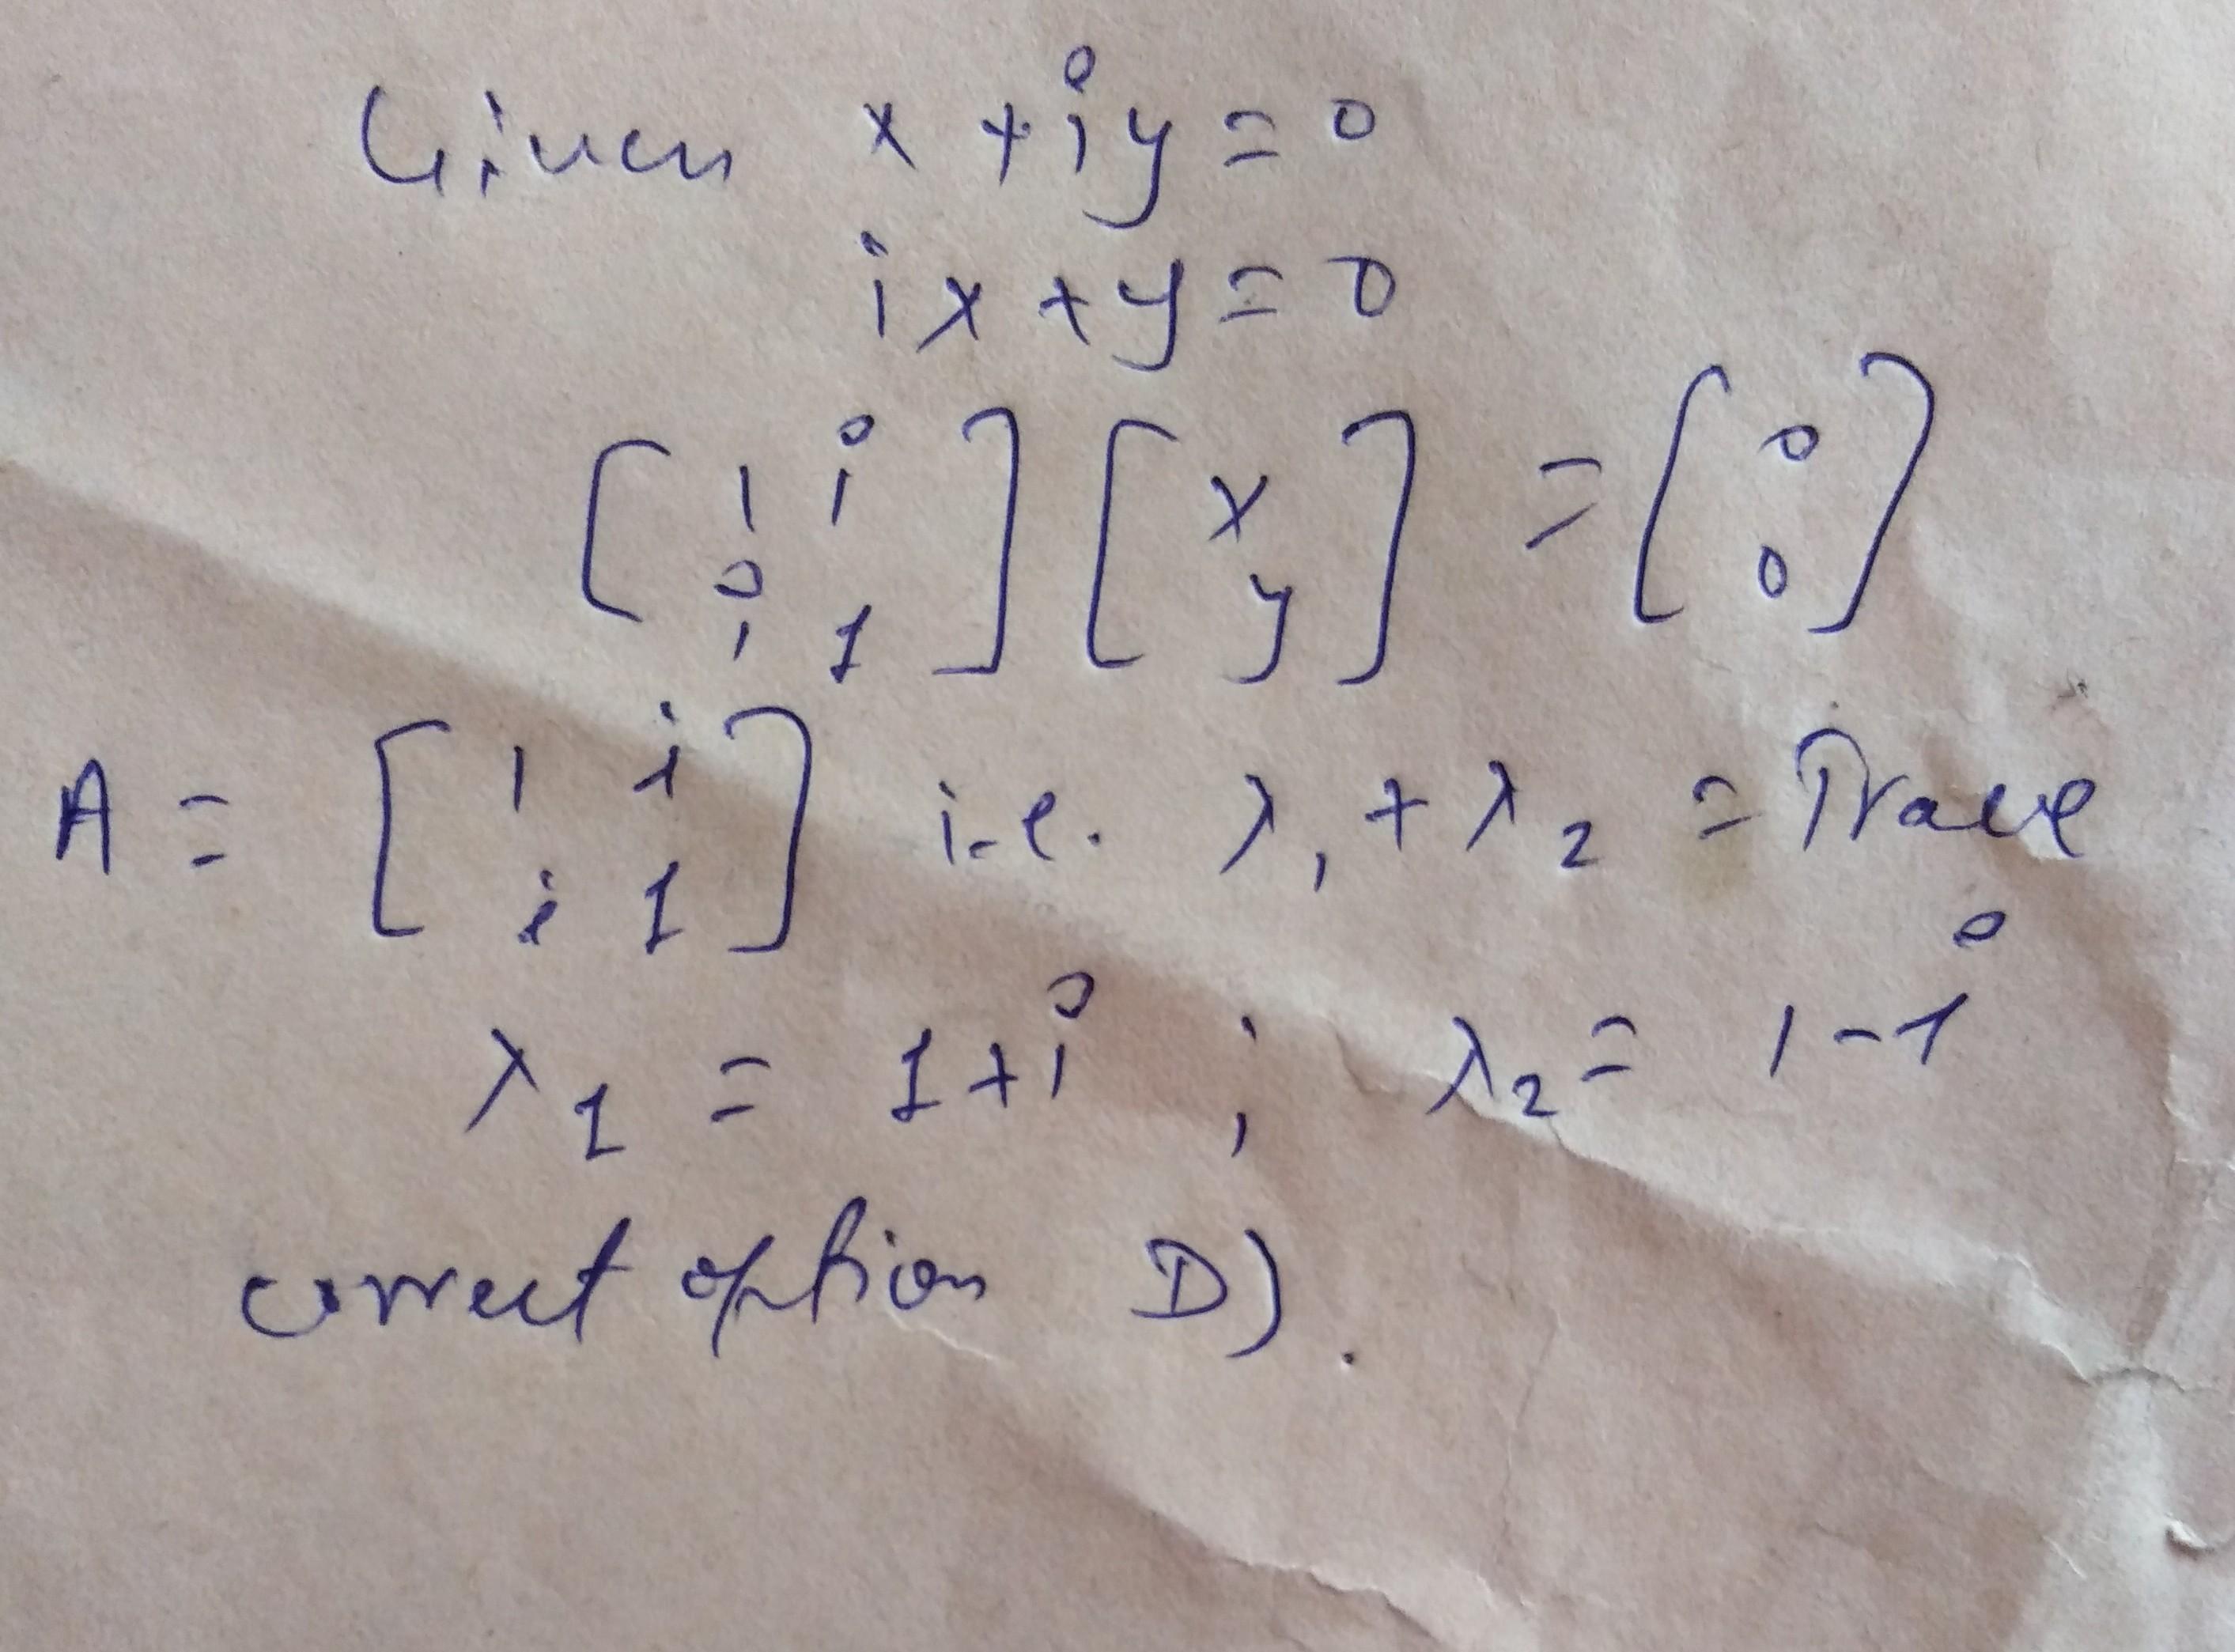 Given x + iy = 0
ix + y = 0
[ 1 i ] [ x ] = [ 0 ]
[ i 1 ] [ y ] [ 0 ]
A = [ 1 i ] i.e. λ₁ + λ₂ = Trace
[ i 1 ]
λ₁ = 1 + i ; λ₂ = 1 - i
correct option D).